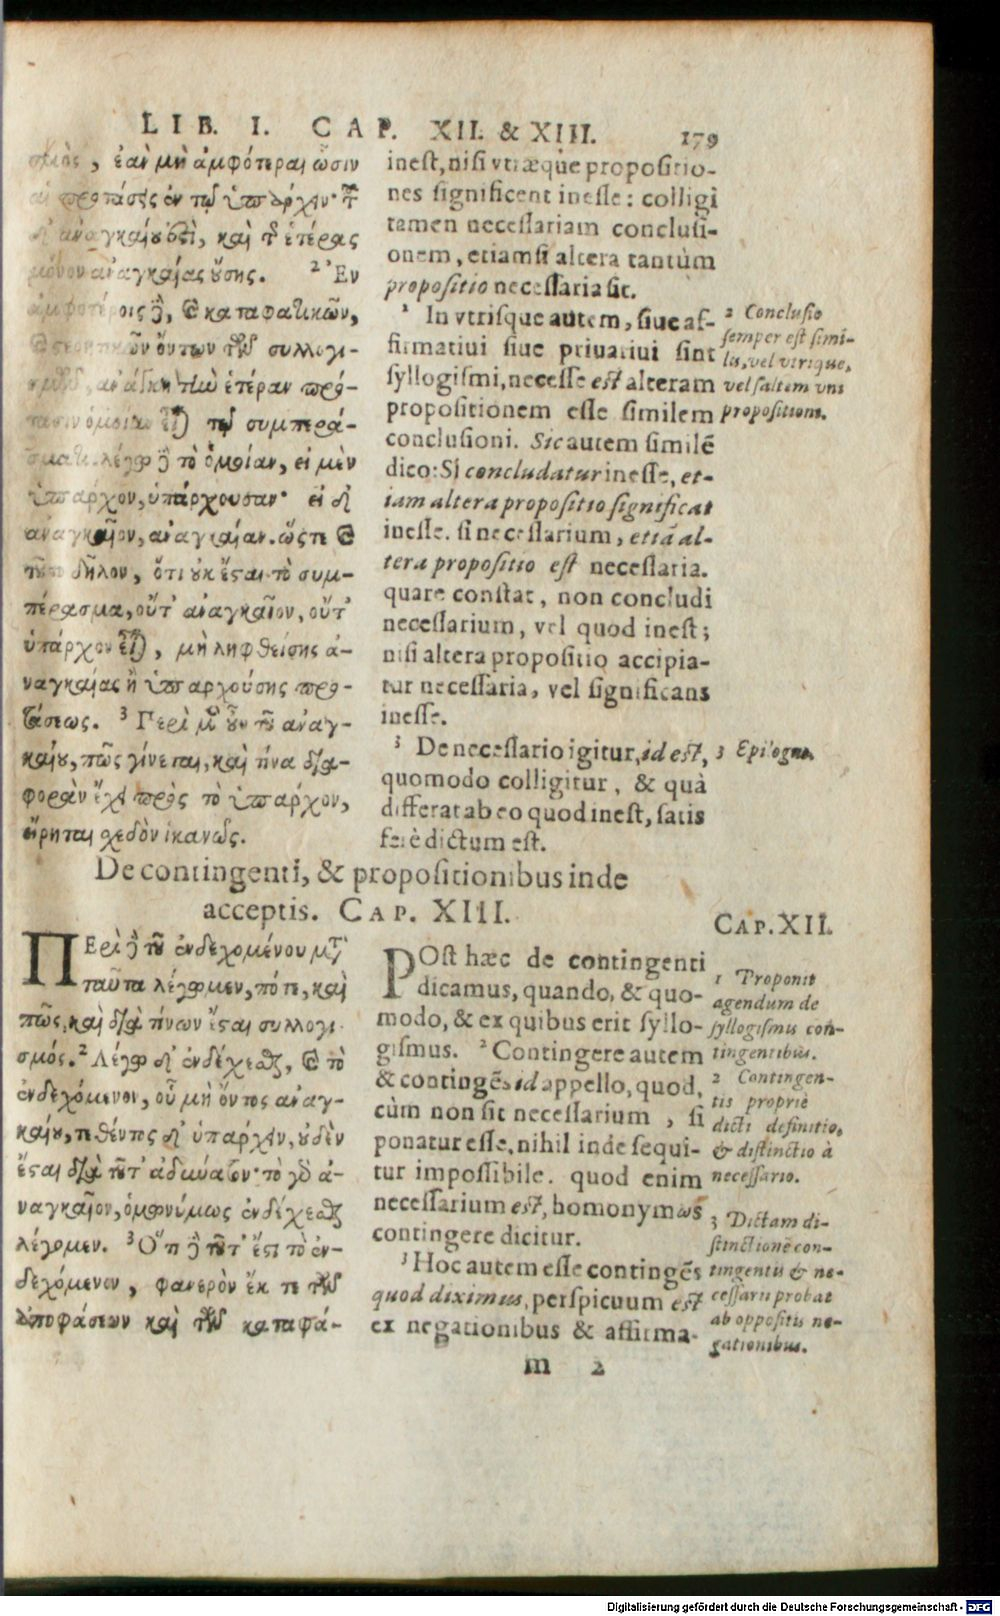 LIB. I. CAP. XII. & XIII. 179
, ἐὰν μὴ ἀμφότεραι ὦσιν
προτάσεις ἐν τῷ ὑπάρχειν· τῦ
ἀναγκαίου ἐστὶ, καὶ τῆς ἑτέρας
μόνον ἀναγκαίας οὔσης. ²Ἐν
ἀμφοτέροις δὲ, καὶ καταφατικῶν,
καὶ στερητικῶν ὄντων τῶν συλλογι-
σμῶν, ἀνάγκη τὴν ἑτέραν πρό-
τασιν ὁμοίαν εἶναι τῷ συμπερά-
σματι. λέγω δὲ τὸ ὁμοίαν, εἰ μὲν
ὑπάρχον, ὑπάρχουσαν· εἰ δ᾽
ἀναγκαῖον, ἀναγκαίαν. ὥςτε καὶ
τοῦτο δῆλον, ὅτι οὐκ ἔςαι τὸ συμ-
πέρασμα, οὔτ᾽ ἀναγκαῖον, οὔτ᾽
ὑπάρχον εἶναι, μὴ ληφθείσης ἀ-
ναγκαίας ἢ ὑπαρχούσης προ-
τάσεως. ³ Περὶ μὲν οὖν τοῦ ἀναγ-
καίου, πῶς γίνεται, καὶ τίνα δια-
φορὰν ἔχει πρὸς τὸ ὑπάρχον,
εἴρηται σχεδὸν ἱκανῶς.
inest, nisi vtræque propositio-
nes significent inesse: colligi
tamen necessariam conclusi-
onem, etiamsi altera tantùm
propositio necessaria sit.
² In vtrisque autem, siue af-
firmatiui siue priuatiui sint
syllogismi, necesse est alteram
propositionem esse similem
conclusioni. Sic autem similē
dico: Si concludatur inesse, et-
iam altera propositio significat
inesse. si necessarium, etiā al-
tera propositio est necessaria.
quare constat, non concludi
necessarium, vel quod inest;
nisi altera propositio accipia-
tur necessaria, vel significans
inesse.
³ De necessario igitur, id est,
quomodo colligitur, & quà
differat ab eo quod inest, satis
ferè dictum est.
2 Conclusio
semper est simi-
lis, vel vtrique,
vel saltem vni
propositioni.
3 Epilogus.
De contingenti, & propositionibus inde
acceptis. CAP. XIII.
ΠΕρὶ δὲ τοῦ ἐνδεχομένου μετὰ
ταῦτα λέγωμεν, πότε, καὶ
πῶς, καὶ διὰ τίνων ἔςαι συλλογι-
σμός. ² Λέγω δ᾽ ἐνδέχεσθαι, καὶ τὸ
ἐνδεχόμενον, οὗ μὴ ὄντος ἀναγ-
καίου, τιθέντος δ᾽ ὑπάρχειν, οὐδὲν
ἔςαι διὰ τοῦτ᾽ ἀδύνατον· τὸ γὰρ ἀ-
ναγκαῖον, ὁμωνύμως ἐνδέχεσθαι
λέγομεν. ³ Ὅτι δὲ τοῦτ᾽ ἔςι τὸ ἐν-
δεχόμενον, φανερὸν ἔκ τε τῶν
ἀποφάσεων καὶ τῶν καταφά-
POst hæc de contingenti
dicamus, quando, & quo-
modo, & ex quibus erit syllo-
gismus. ² Contingere autem
& contingēs id appello, quod,
cùm non sit necessarium, si
ponatur esse, nihil inde sequi-
tur impossibile. quod enim
necessarium est, homonymως
contingere dicitur.
³ Hoc autem esse contingēs
quod diximus, perspicuum est
ex negationibus & affirma-
CAP. XII.
1 Proponit
agendum de
syllogismis con-
tingentibus.
2 Contingen-
tis propriè
dicti definitio,
& distinctio à
necessario.
3 Dictam di-
stinctionē con-
tingentis & ne-
cessarii probat
ab oppositis ne-
gationibus.
m 2
Digitalisierung gefördert durch die Deutsche Forschungsgemeinschaft - DFG